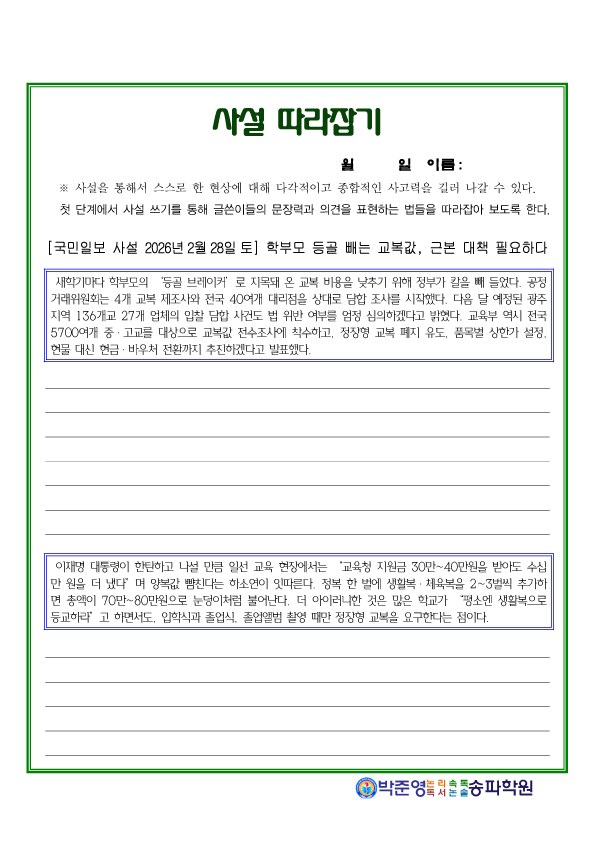 사설 따라잡기
월 일 이름:
※ 사설을 통해서 스스로 한 현상에 대해 다각적이고 종합적인 사고력을 길러 나갈 수 있다.
첫 단계에서 사설 쓰기를 통해 글쓴이들의 문장력과 의견을 표현하는 법들을 따라잡아 보도록 한다.
[국민일보 사설 2026년 2월 28일 토] 학부모 등골 빼는 교복값, 근본 대책 필요하다
새학기마다 학부모의 ‘등골 브레이커’로 지목돼 온 교복 비용을 낮추기 위해 정부가 칼을 빼 들었다. 공정
거래위원회는 4개 교복 제조사와 전국 40여개 대리점을 상대로 담합 조사를 시작했다. 다음 달 예정된 광주
지역 136개교 27개 업체의 입찰 담합 사건도 법 위반 여부를 엄정 심의하겠다고 밝혔다. 교육부 역시 전국
5700여개 중·고교를 대상으로 교복값 전수조사에 착수하고, 정장형 교복 폐지 유도, 품목별 상한가 설정,
현물 대신 현금·바우처 전환까지 추진하겠다고 발표했다.
이재명 대통령이 한탄하고 나설 만큼 일선 교육 현장에서는 ‘교육청 지원금 30만~40만원을 받아도 수십
만 원을 더 냈다”며 양복값 뺨친다는 하소연이 잇따른다. 정복 한 벌에 생활복·체육복을 2~3벌씩 추가하
면 총액이 70만~80만원으로 눈덩이처럼 불어난다. 더 아이러니한 것은 많은 학교가 “평소엔 생활복으로
등교하라”고 하면서도, 입학식과 졸업식, 졸업앨범 촬영 때만 정장형 교복을 요구한다는 점이다.
박준영 논리속독 독서논술 송파학원